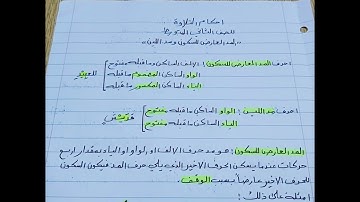 احكام التلاوة
للصف الثاني المتوسط
"المد العارض للسكون ومد اللين"
احرف المد العارض للسكون : الالف الساكن وما قبله مفتوح
الواو الساكن المضموم ما قبله
الياء الساكن المكسور ما قبله
احرف مد اللين : الواو الساكن ما قبله مفتوح
الياء الساكن ما قبله مفتوح
قريش
المد العارض للسكون : هو مد حرف الالف او الواو او الياء بمقدار اربع
حركات عندما يسكن الحرف الاخير الذي يأتي حرف المد فيكون السكون
للحرف الاخير عارضاً بسبب الوقف .
امثلة على ذلك :